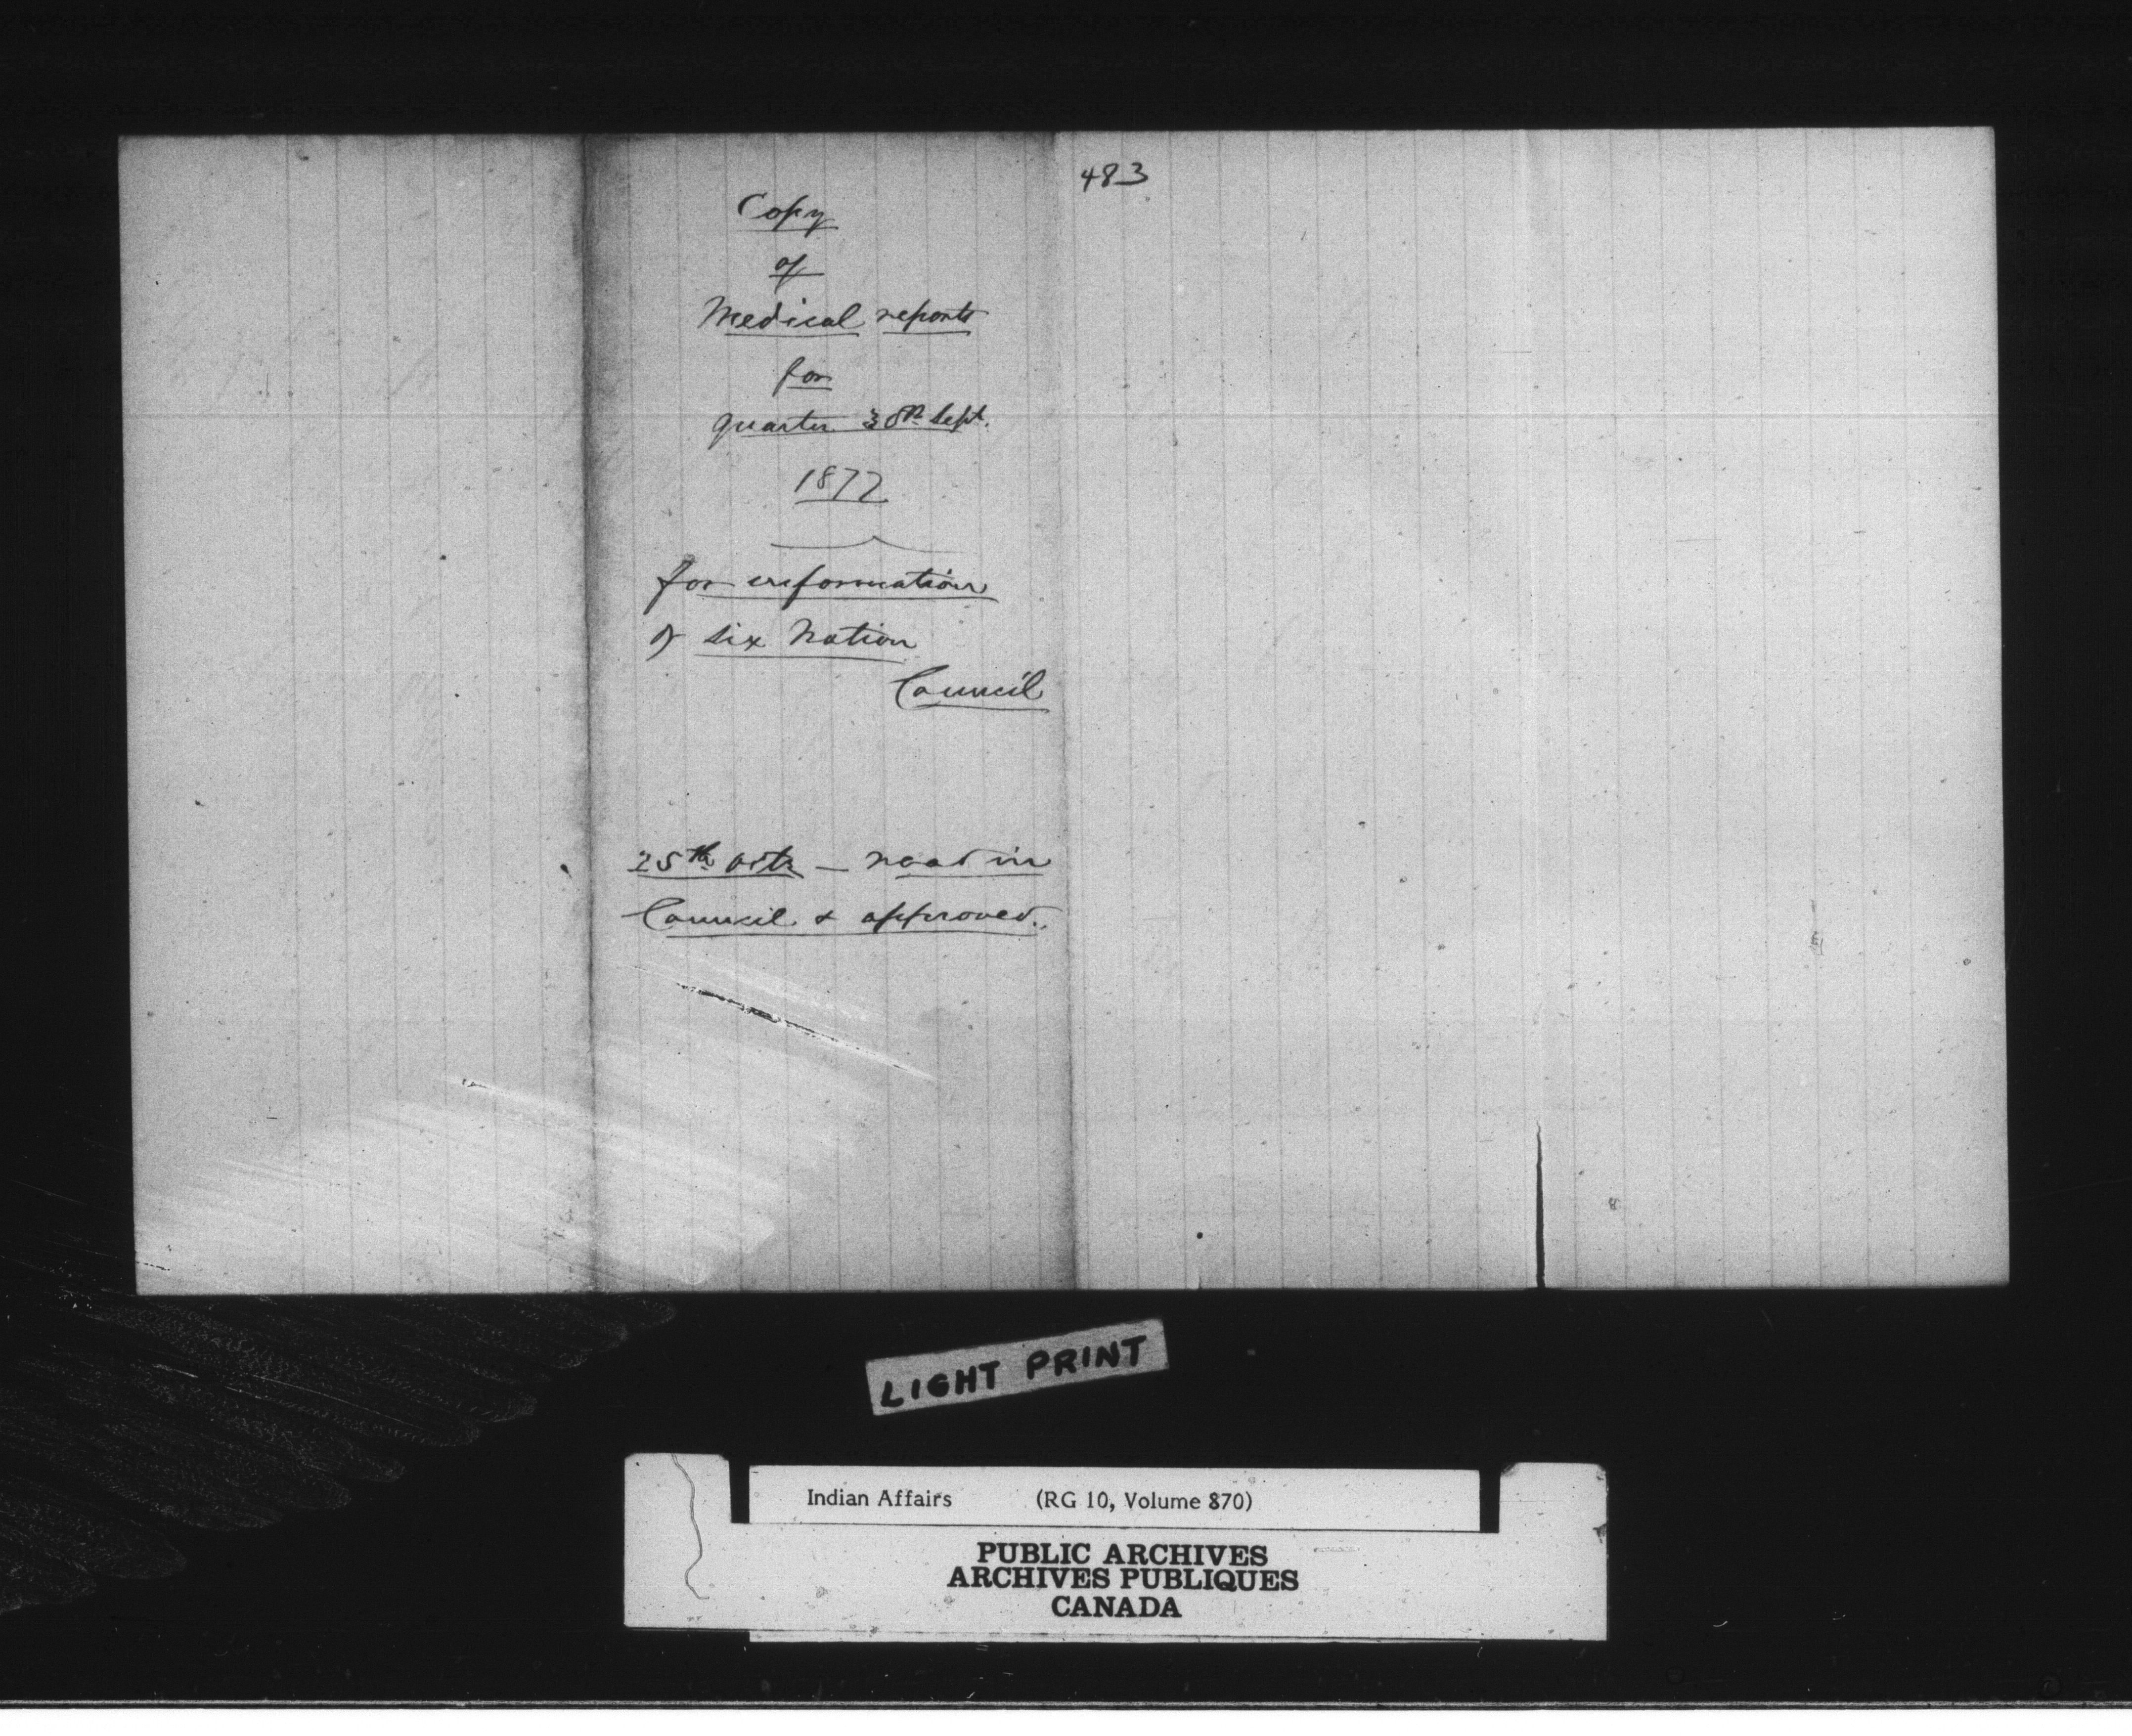 483
Copy
of
Medical reports
for
quarter 30th Sept.
1872
for information
of Six Nation
Council
25th Octr — read in
Council & approved.
LIGHT PRINT
Indian Affairs (RG 10, Volume 870)
PUBLIC ARCHIVES
ARCHIVES PUBLIQUES
CANADA